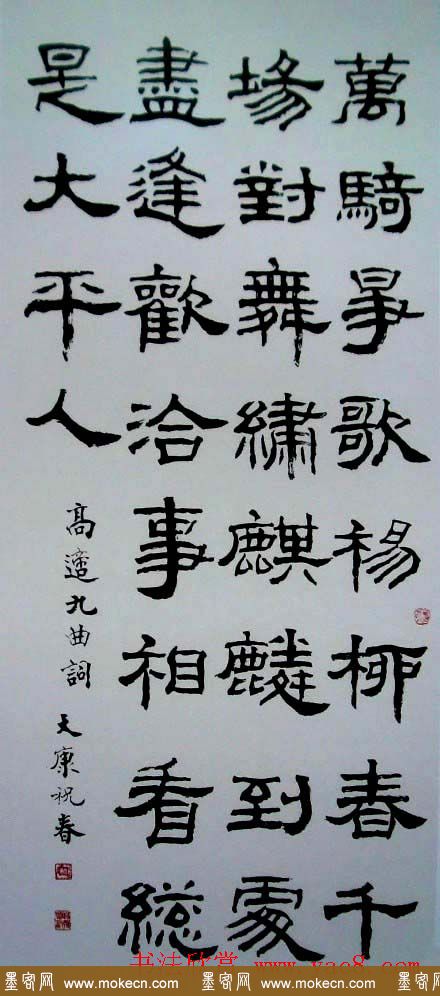 萬騎爭歌楊柳春千
場對舞繡麒麟到處
盡逢歡洽事相看總
是大平人
高適九曲詞 大康祝春
书法欣赏 www.yac8.com
墨客网 www.mokecn.com 墨客网 www.mokecn.com 墨客网 www.mokecn.com